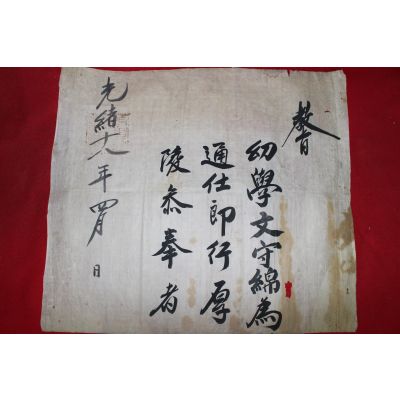 敎旨
幼學文守綿為
通仕郎行厚
陵叅奉者
光緒十八年四月 日